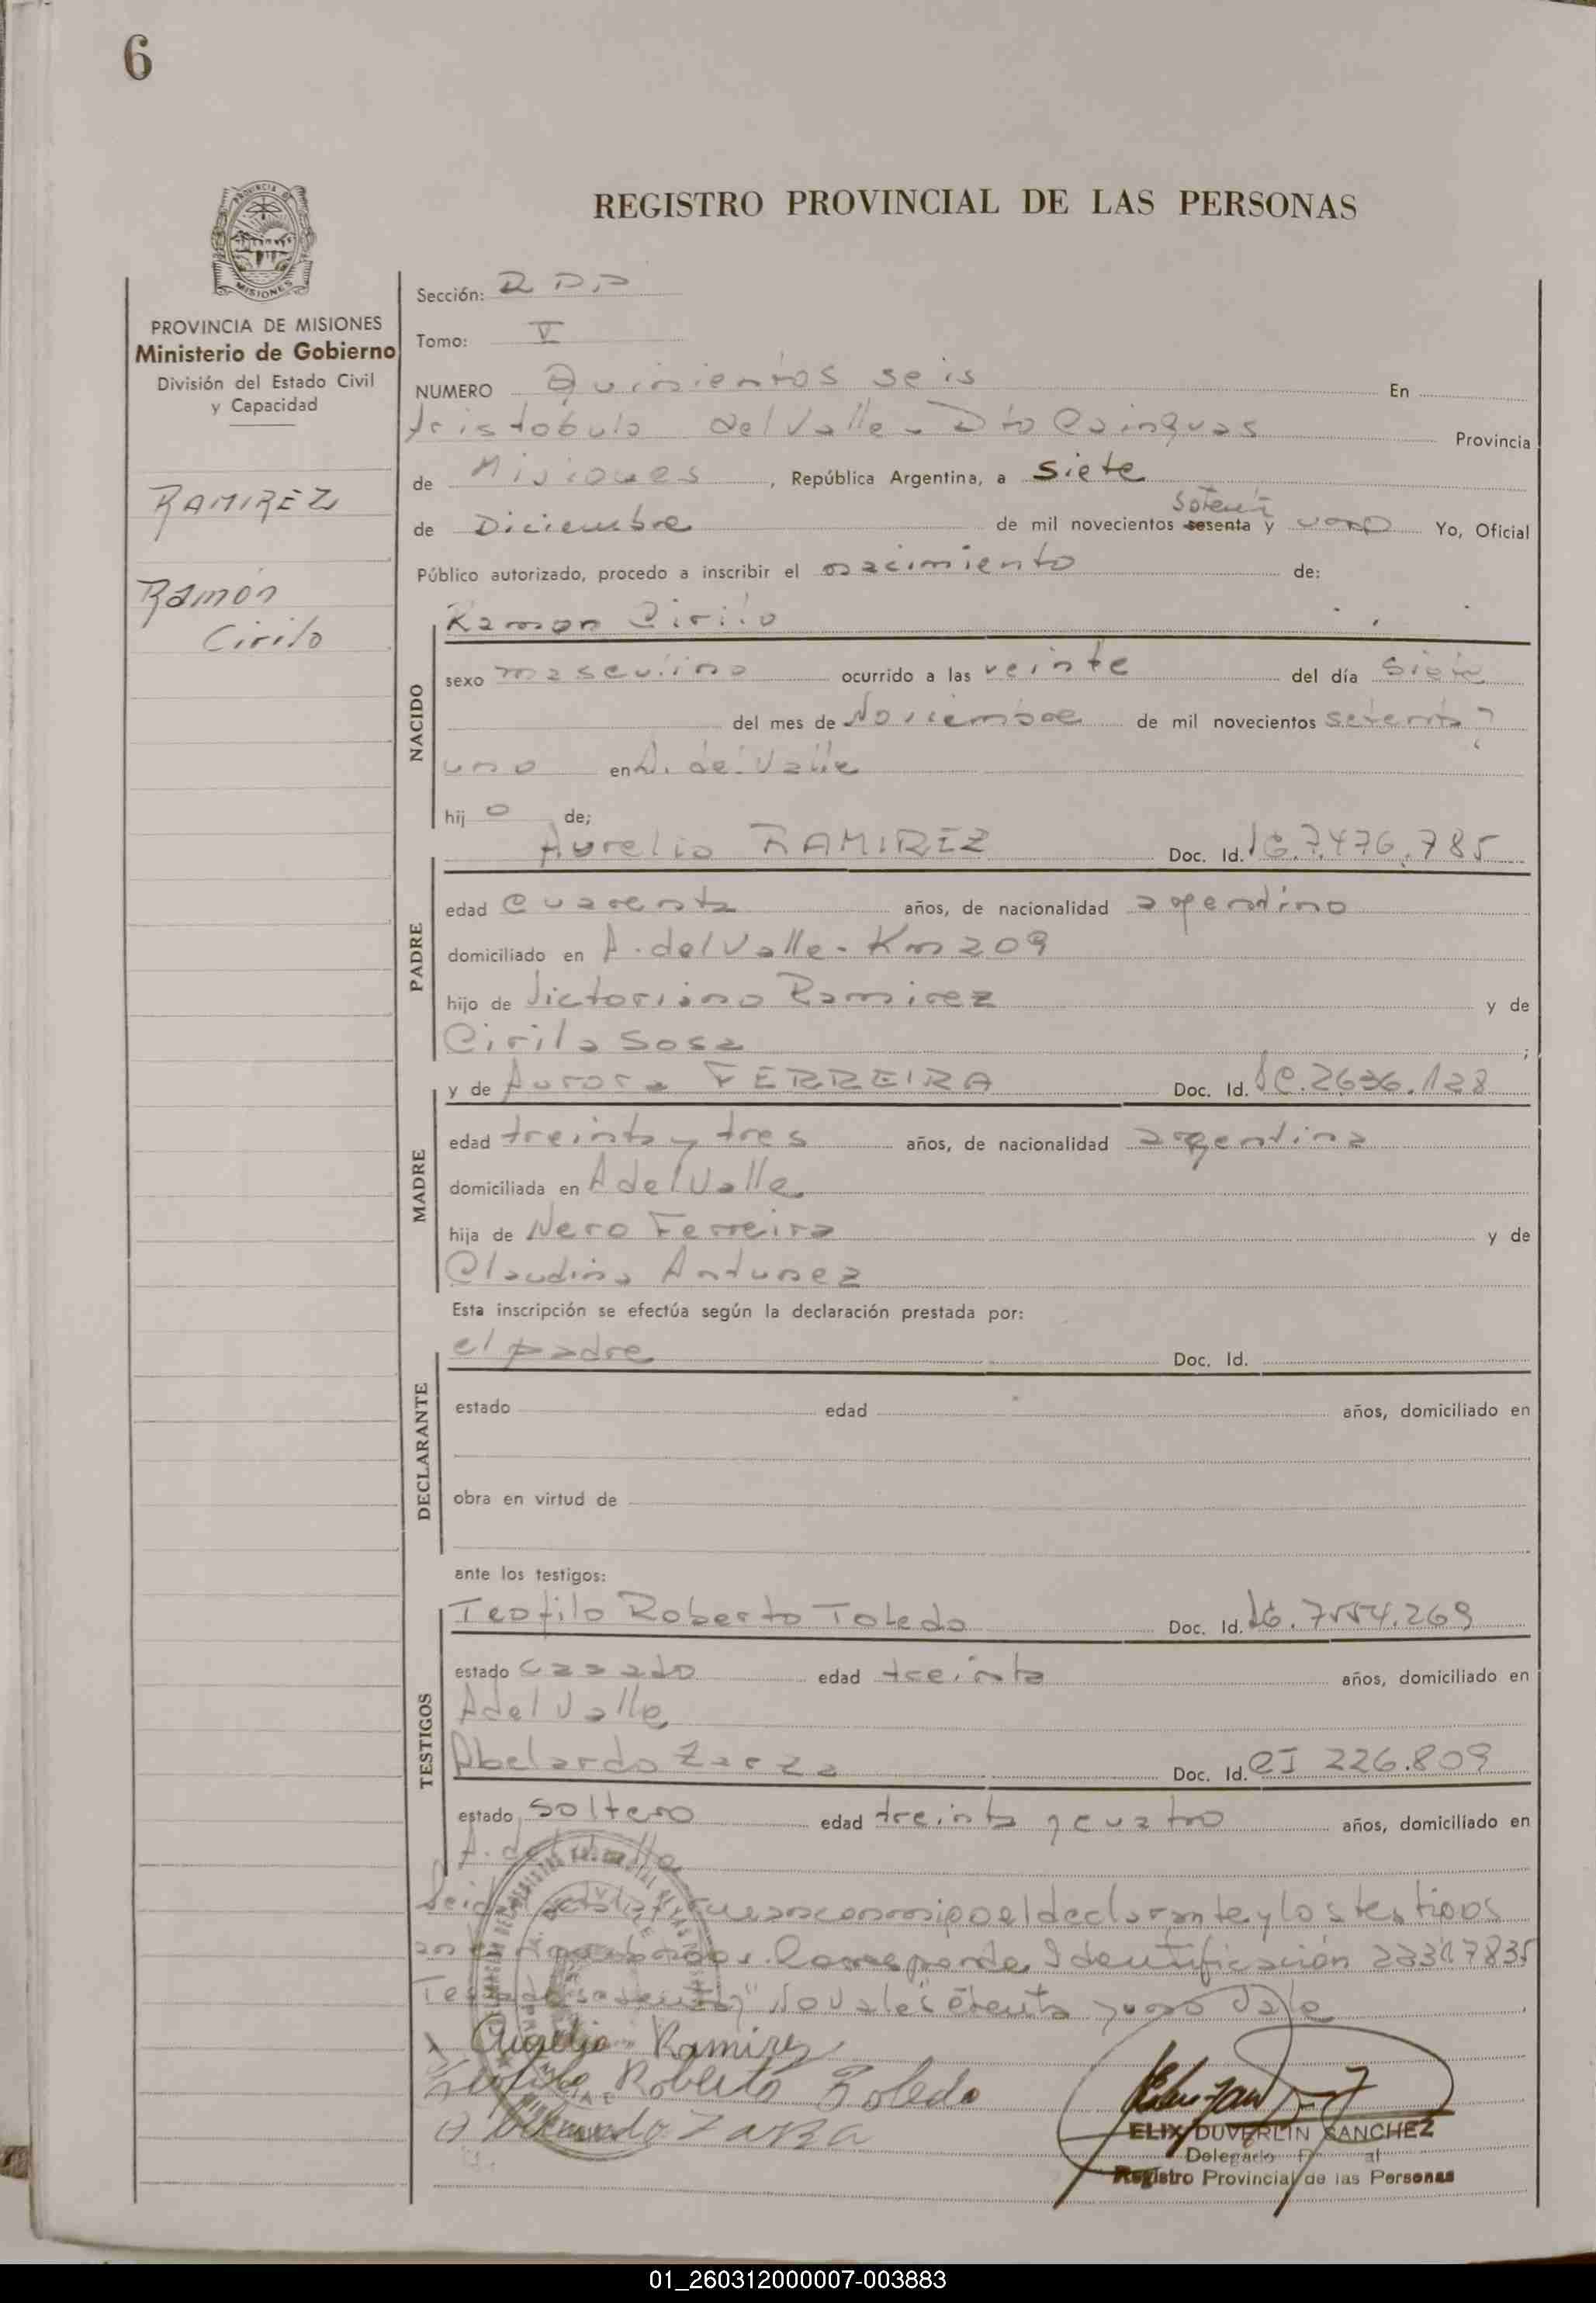 6
PROVINCIA DE
MISIONES
REGISTRO PROVINCIAL DE LAS PERSONAS
PROVINCIA DE MISIONES
Ministerio de Gobierno
División del Estado Civil
y Capacidad
RAMIREZ
Ramón
Cirilo
Sección: R P.P
Tomo: V
NUMERO Quinientos seis En
Aristobulo del Valle - Dto Cainguas Provincia
de Misiones, República Argentina, a Siete
setenta
de Diciembre de mil novecientos sesenta y uno Yo, Oficial
Público autorizado, procedo a inscribir el nacimiento de:
Ramon Cirilo
NACIDO
sexo masculino ocurrido a las veinte del día siete
del mes de Noviembre de mil novecientos setenta y
uno en A. del Valle
hij o de;
Aurelio RAMIREZ Doc. Id. 7.476.785
PADRE
edad cuarenta años, de nacionalidad argentino
domiciliado en A. del Valle - Km 209
hijo de Victoriano Ramirez y de
Cirila Sosa ;
y de Aurora FERREIRA Doc. Id. 2636.128
MADRE
edad treinta y tres años, de nacionalidad argentina
domiciliada en A del Valle
hija de Nero Ferreira y de
Claudina Antunez
Esta inscripción se efectúa según la declaración prestada por:
el padre Doc. Id.
DECLARANTE
estado edad años, domiciliado en
obra en virtud de
ante los testigos:
Teofilo Roberto Toledo Doc. Id. 7554.269
TESTIGOS
estado casado edad treinta años, domiciliado en
A del Valle
Abelardo Zarza Doc. Id. CI 226.809
estado soltero edad treinta y cuatro años, domiciliado en
A. del Valle
Leida el acta la firman conmigo el declarante y los testigos
Corresponde Identificación
No Vale "setenta y uno Vale
Aurelio Ramirez
Teofilo Roberto Toledo
Abelardo Zarza
ELIX DUVERLIN SANCHEZ
Delegado
Registro Provincial de las Personas
01_260312000007-003883